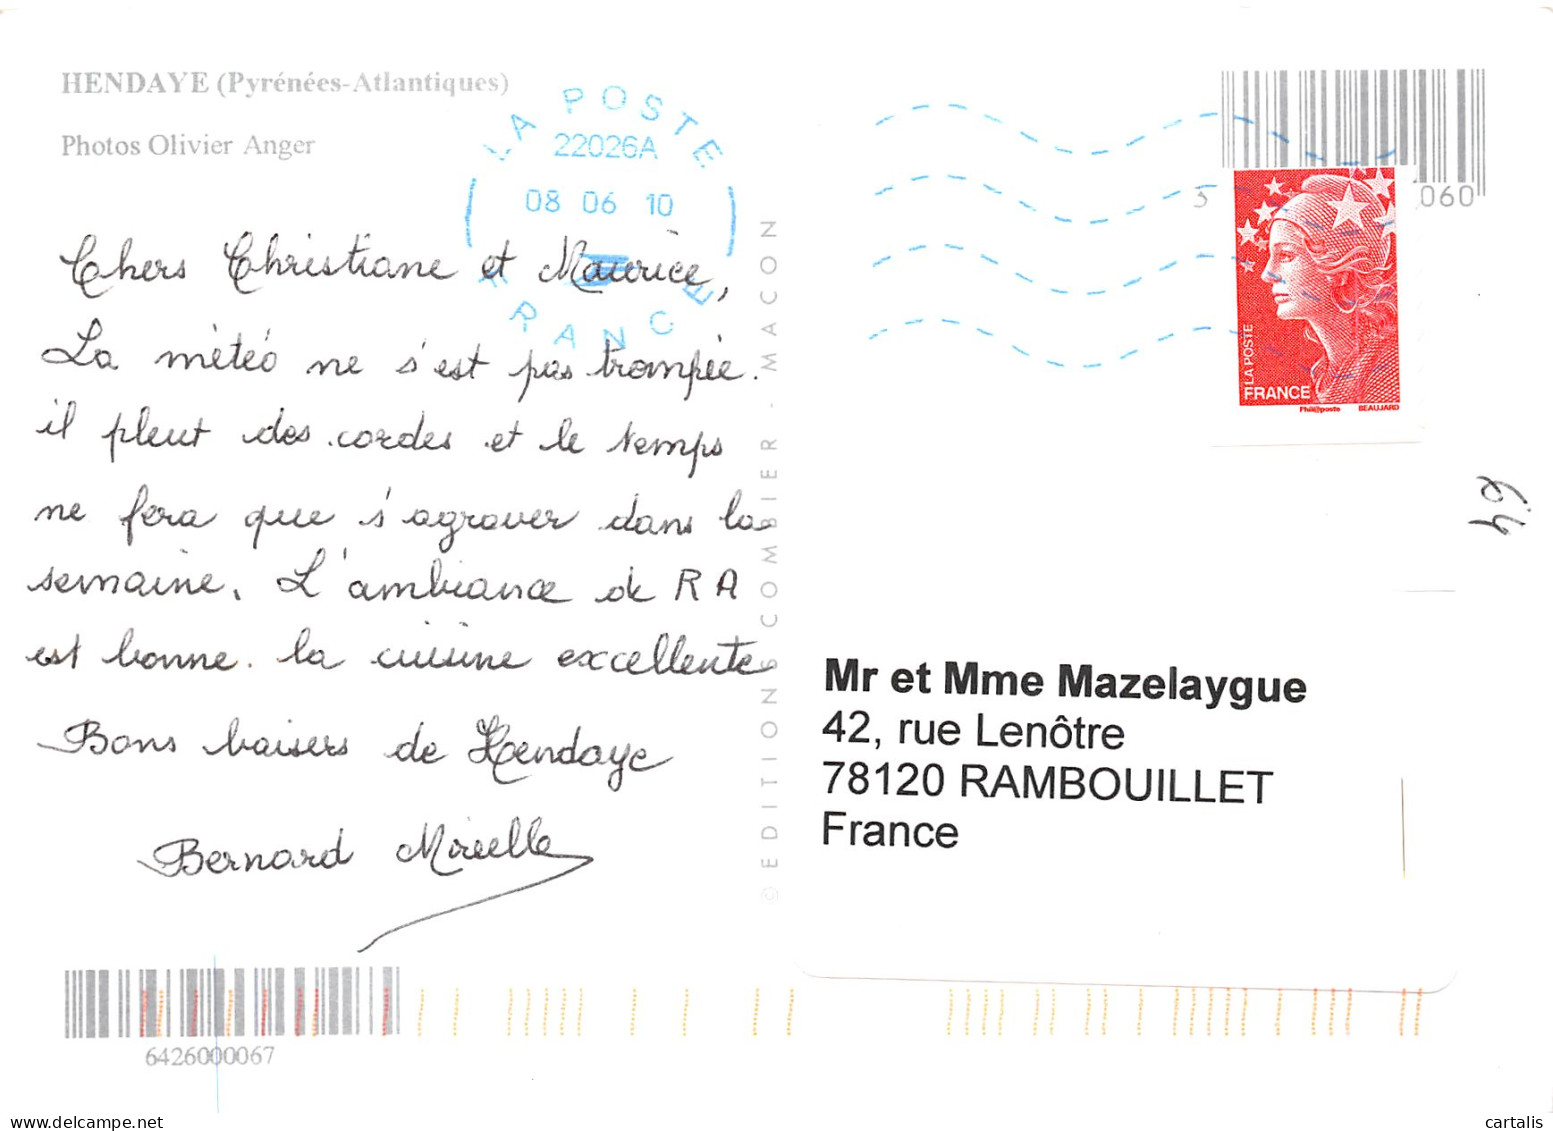 HENDAYE (Pyrénées-Atlantiques)
Photos Olivier Anger
LA POSTE
22026A
08 06 10
FRANCE
Chers Christiane et Maurice,
La météo ne s'est pas trompée.
il pleut des cordes et le temps
ne fera que s'agraver dans la
semaine. L'ambiance de RA
est bonne. la cuisine excellente
Bons baisers de Hendaye
Bernard Mireille
6426000067
© EDITIONS COMBIER - MACON
3
060
LA POSTE
FRANCE
Phil@poste
BEAUJARD
Mr et Mme Mazelaygue
42, rue Lenôtre
78120 RAMBOUILLET
France
delcampe.net
cartalis